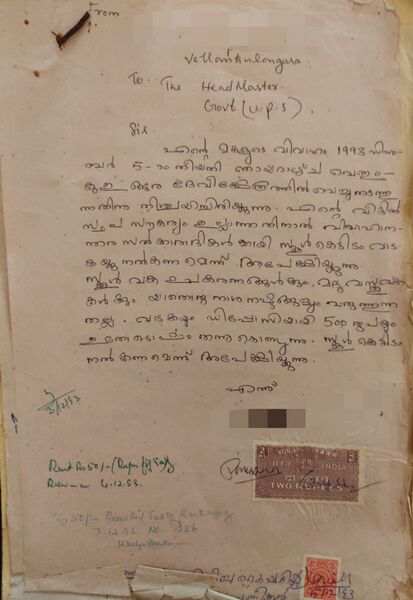 From
Vellamkulangara
To. The HeadMaster
Govt (U.P.S)
Sir
എന്റെ മകളുടെ വിവാഹം 1993 ഡിസം-
ബർ 5-ാം തീയതി ഞായറാഴ്ച
ദേവീക്ഷേത്രത്തിൽ വെച്ചു നടത്തു
ന്നതിനു നിശ്ചയിച്ചിരിക്കുന്നു. എന്റെ വീട്ടിൽ
സ്ഥല സൗകര്യം ഇല്ലാത്തതിനാൽ വിവാഹാന-
ന്തര സൽക്കാരാദികൾക്കായി സ്കൂൾ കെട്ടിടം വാട
കയ്ക്കു നൽകണമെന്ന് അപേക്ഷിക്കുന്നു.
സ്കൂൾ വക ഉപകരണങ്ങൾക്കും, മറ്റു വസ്തുവക
കൾക്കും യാതൊരു നാശനഷ്ടങ്ങളും വരുത്തുന്ന
തല്ല. വാടകയും ഡിപ്പോസിറ്റായി 500 രൂപയും
ഇതോടൊപ്പം തന്നുകൊള്ളുന്നു. സ്കൂൾ കെട്ടിടം
നൽകണമെന്ന് അപേക്ഷിക്കുന്നു.
എന്ന്
5/12/93
Rent Rs 50/- (Rupees fifty only)
4.12.93.
50/- Remitted
7.12.93 No 256
2 RS
INDIA
TWO RUPEES
5/12/93